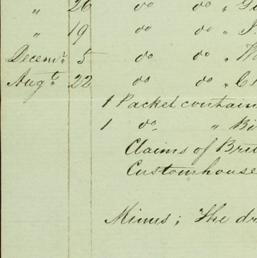 " 26 do do "
" 19 do do "
Decemr. 5 do do "
Augt. 22 do do "
1 Packet contain
1 do. "
Claims of Brit
Customhouse
Minus; The dr